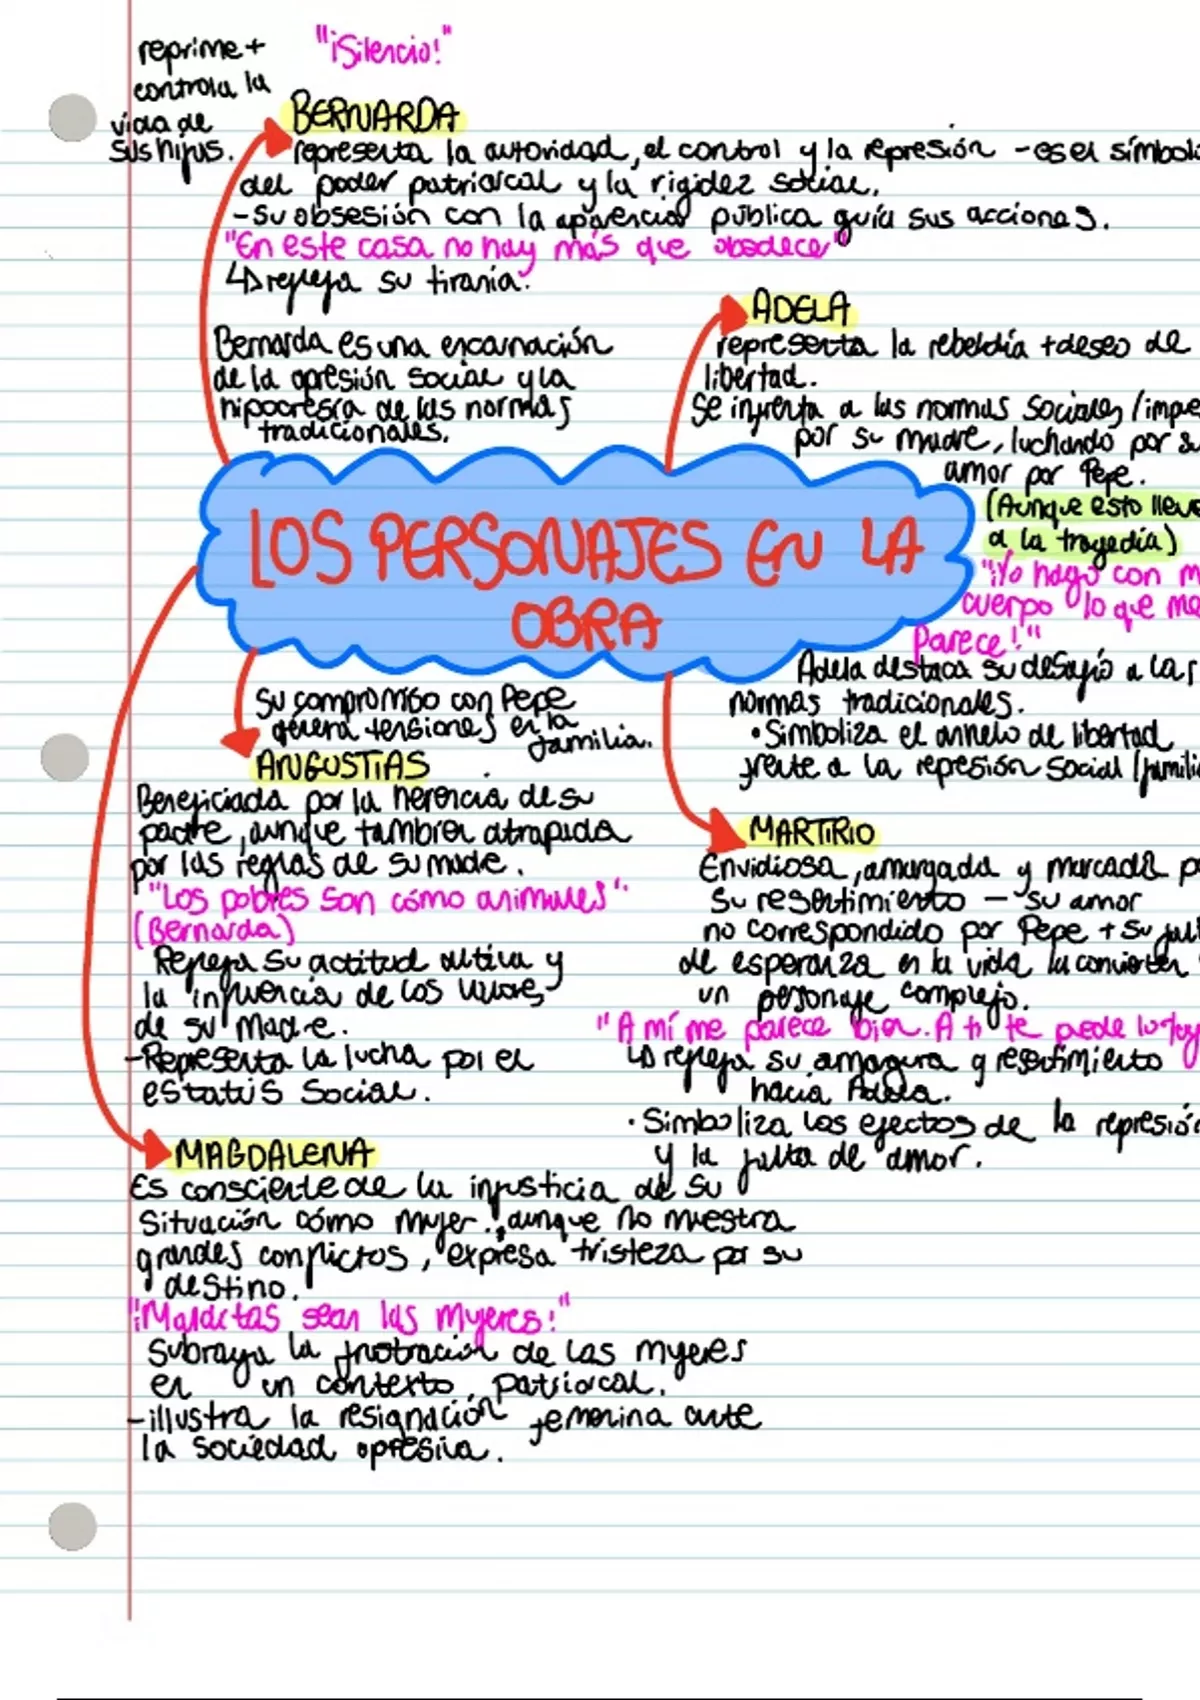 "¡Silencio!"
reprime +
controla la
vida de
sus hijas.
BERNARDA
representa la autoridad, el control y la represión - es el símbolo
del poder patriarcal y la rigidez social.
- Su obsesión con la apariencia pública guía sus acciones.
"En este casa no hay más que obedece"
↳ refleja su tiranía.
Bernarda es una encarnación
de la opresión social y la
hipocresía de las normas
tradicionales.
ADELA
representa la rebeldía + deseo de
libertad.
Se infrenta a las normas sociales / impe
por su madre, luchando por su
amor por Pepe.
(Aunque esto lleve
a la tragedia)
"¡Yo hago con m
cuerpo lo que me
parece!"
Adela destaca su desafío a las
normas tradicionales.
• Simboliza el anhelo de libertad
frente a la represión social / famili
LOS PERSONAJES EN LA
OBRA
Su compromiso con Pepe
genera tensiones en la
familia.
ANGUSTIAS
Beneficiada por la herencia de su
padre, aunque también atrapada
por las reglas de su madre.
"Los pobres son cómo animales".
(Bernarda)
Refleja su actitud altiva y
la influencia de los valores
de su madre.
- Representa la lucha por el
estatus social.
MARTIRIO
Envidiosa, amargada y marcada p
su resentimiento – su amor
no correspondido por Pepe + su falt
de esperanza en la vida la convierten
un personaje complejo.
"A mí me parece bien. A ti te puede
↳ refleja su amargura y resentimiento
hacia Adela.
• Simboliza los efectos de la represión
y la falta de amor.
MAGDALENA
Es consciente de la injusticia de su
situación cómo mujer., aunque no muestra
grandes conflictos, expresa tristeza por su
destino.
"¡Malditas sean las mujeres!"
Subraya la frustración de las mujeres
en un contexto patriarcal.
- illustra la resignación femenina ante
la sociedad opresiva.